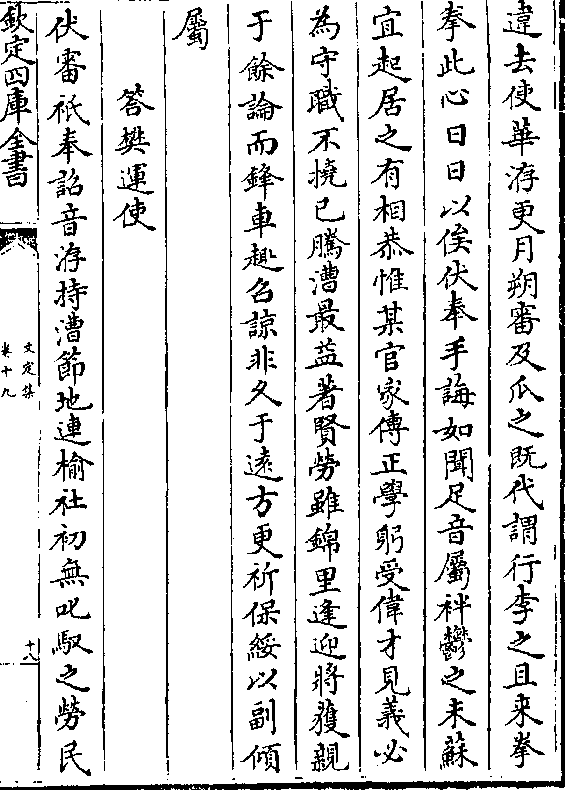 違去使華洊更月朔審及瓜之既代謂行李之且来拳
拳此心日日以俟伏奉手誨如聞足音屬袢鬱之未蘇
宜起居之有相恭惟某官家傳正學躬受偉才見義必
為守職不撓已騰漕最益著賢勞雖錦里逢迎將獲親
于餘論而鋒車趣召諒非久于遠方更祈保綏以副傾
屬
答樊運使
伏審祇奉詔音洊持漕節地連榆社初無叱馭之勞民
欽定四庫全書
文定集
卷十九
十八